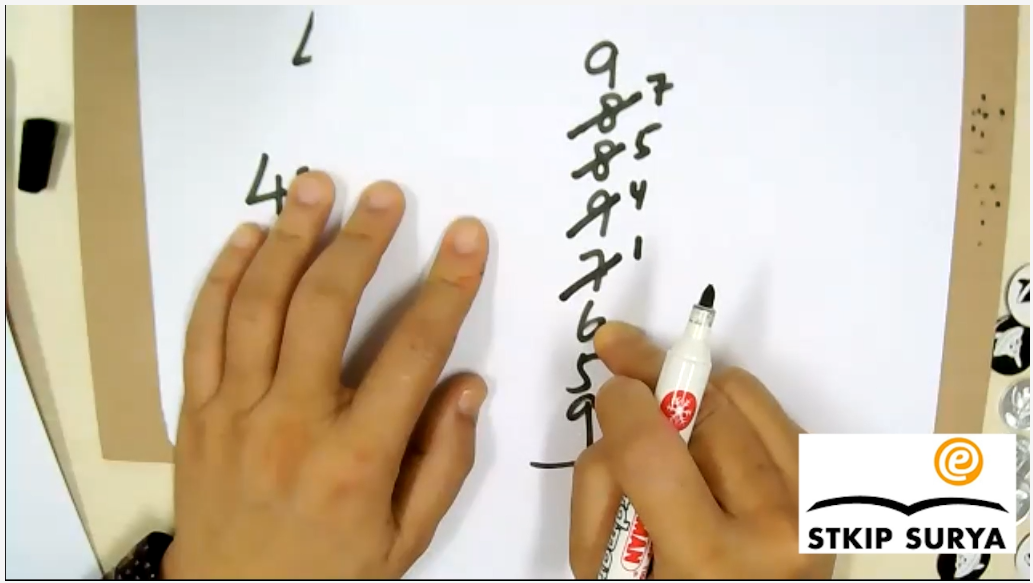 9
8 7
8 5
9 4
7 1
6
5
9
4
STKIP SURYA